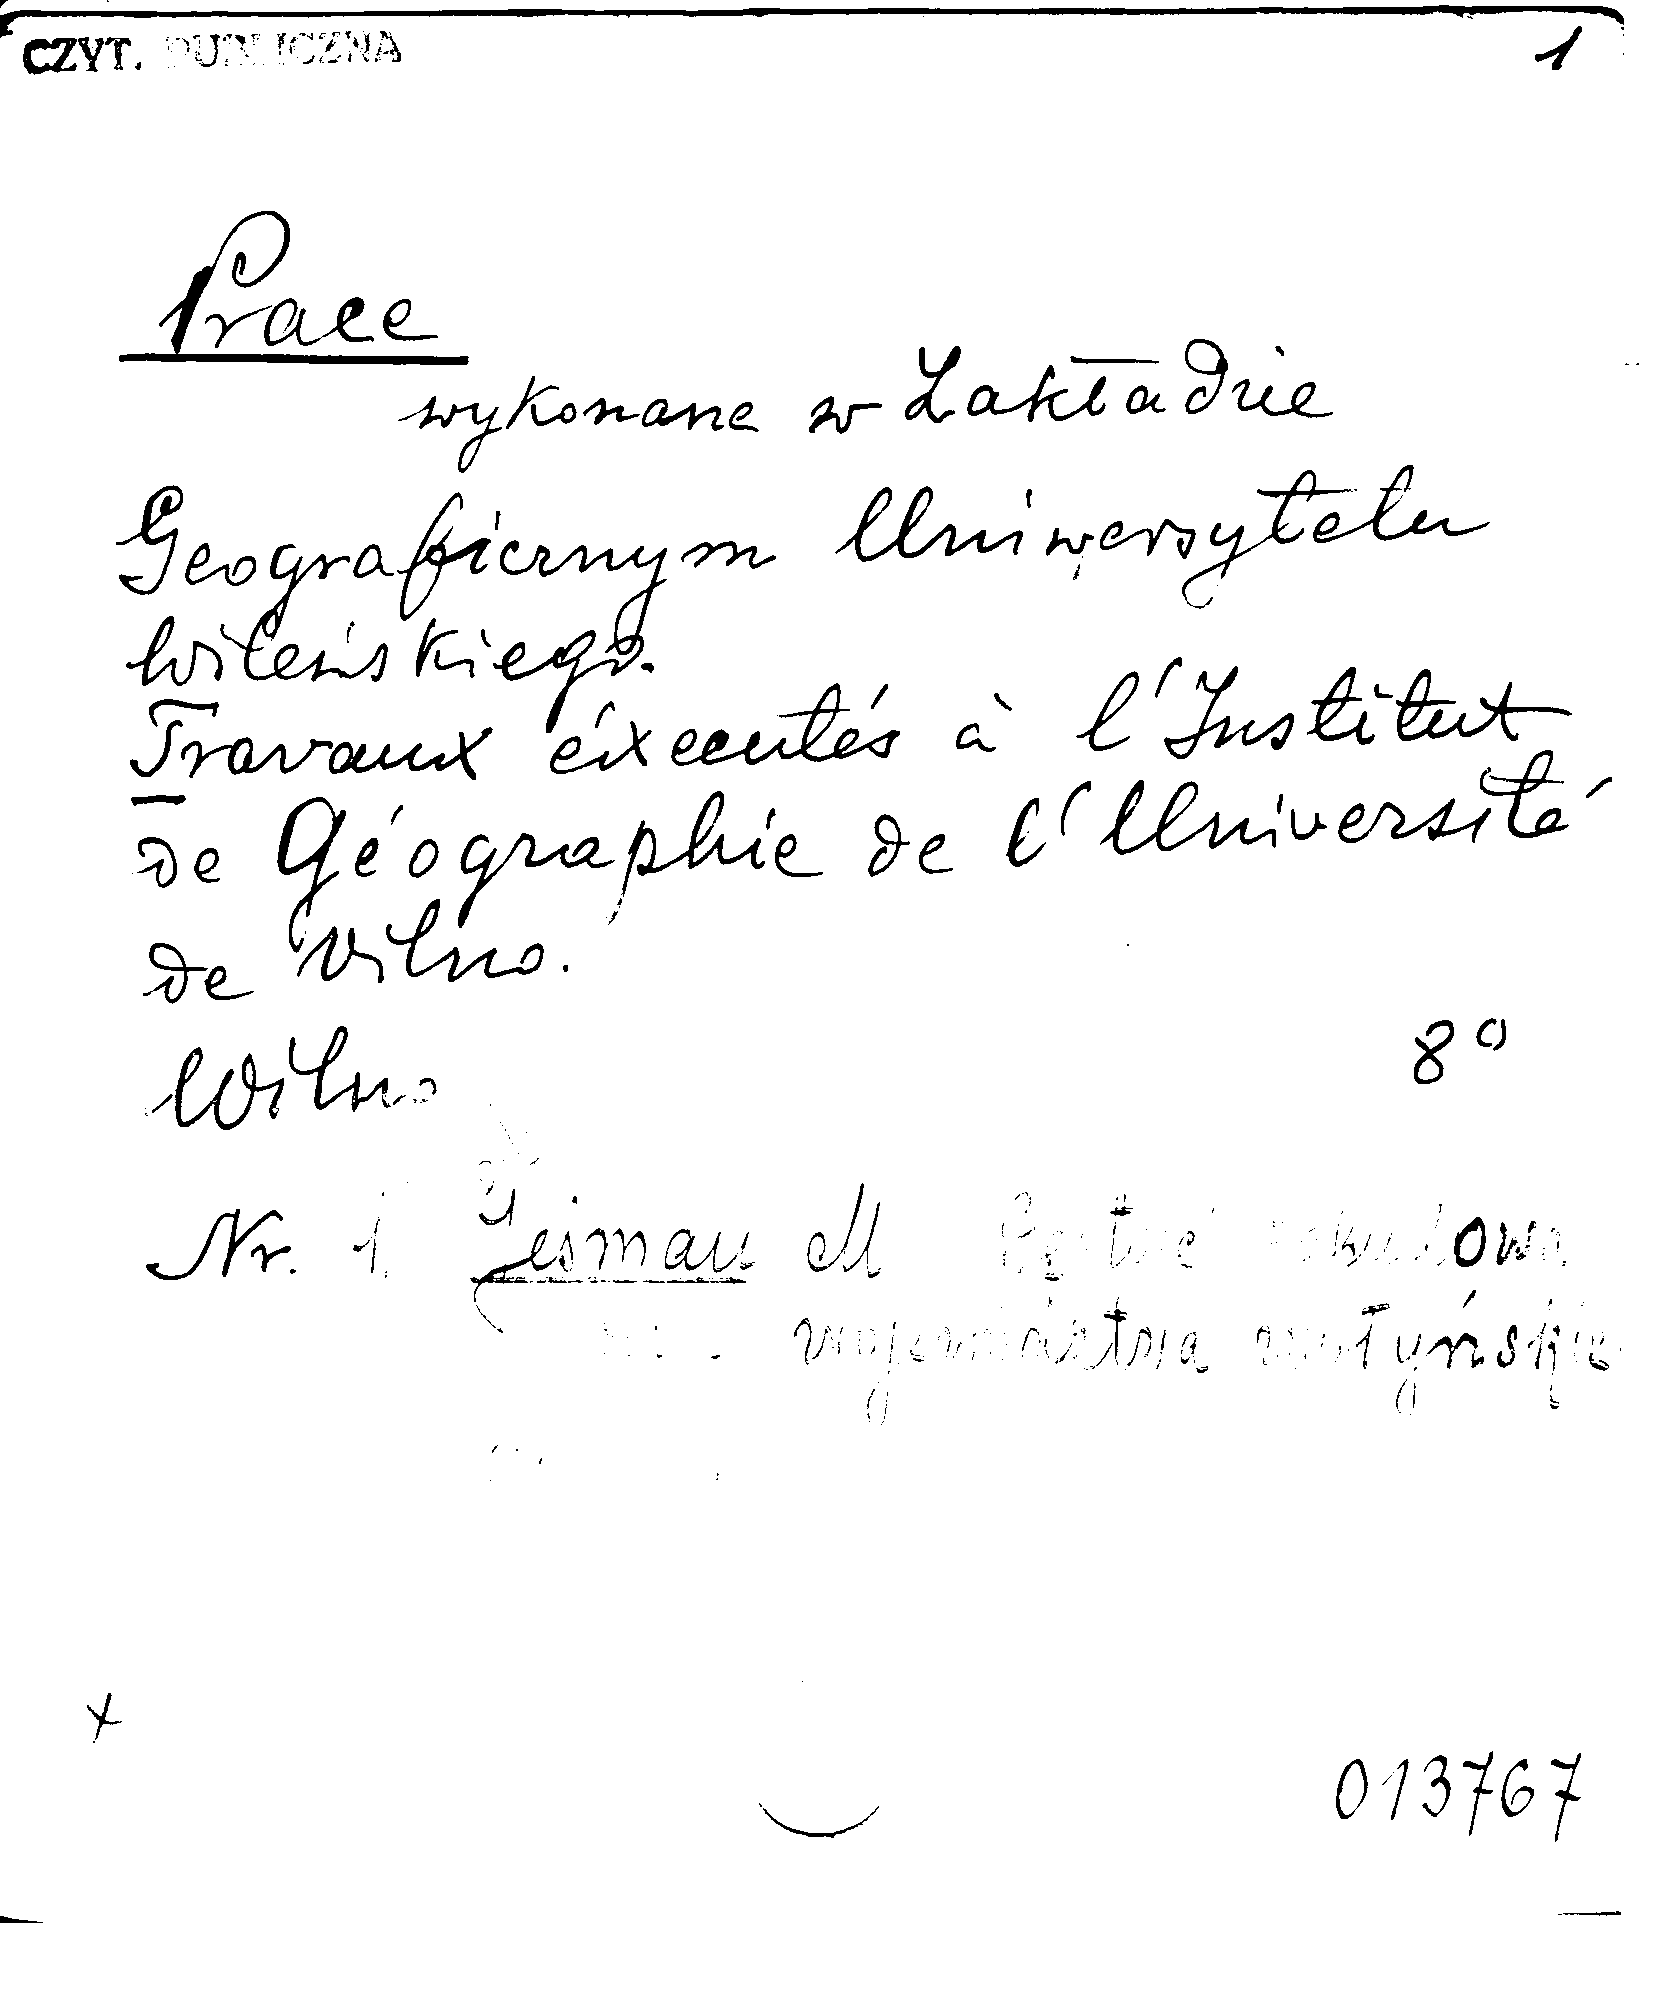 CZYT. PUBLICZNA
1
Prace
wykonane w Zakładzie
Geograficznym Uniwersytetu
Wileńskiego.
Travaux éxecutés à l'Institut
de Géographie de l'Université
de Vilno.
Wilno
8°
Nr. 1. M
województwa wołyńskie
013767